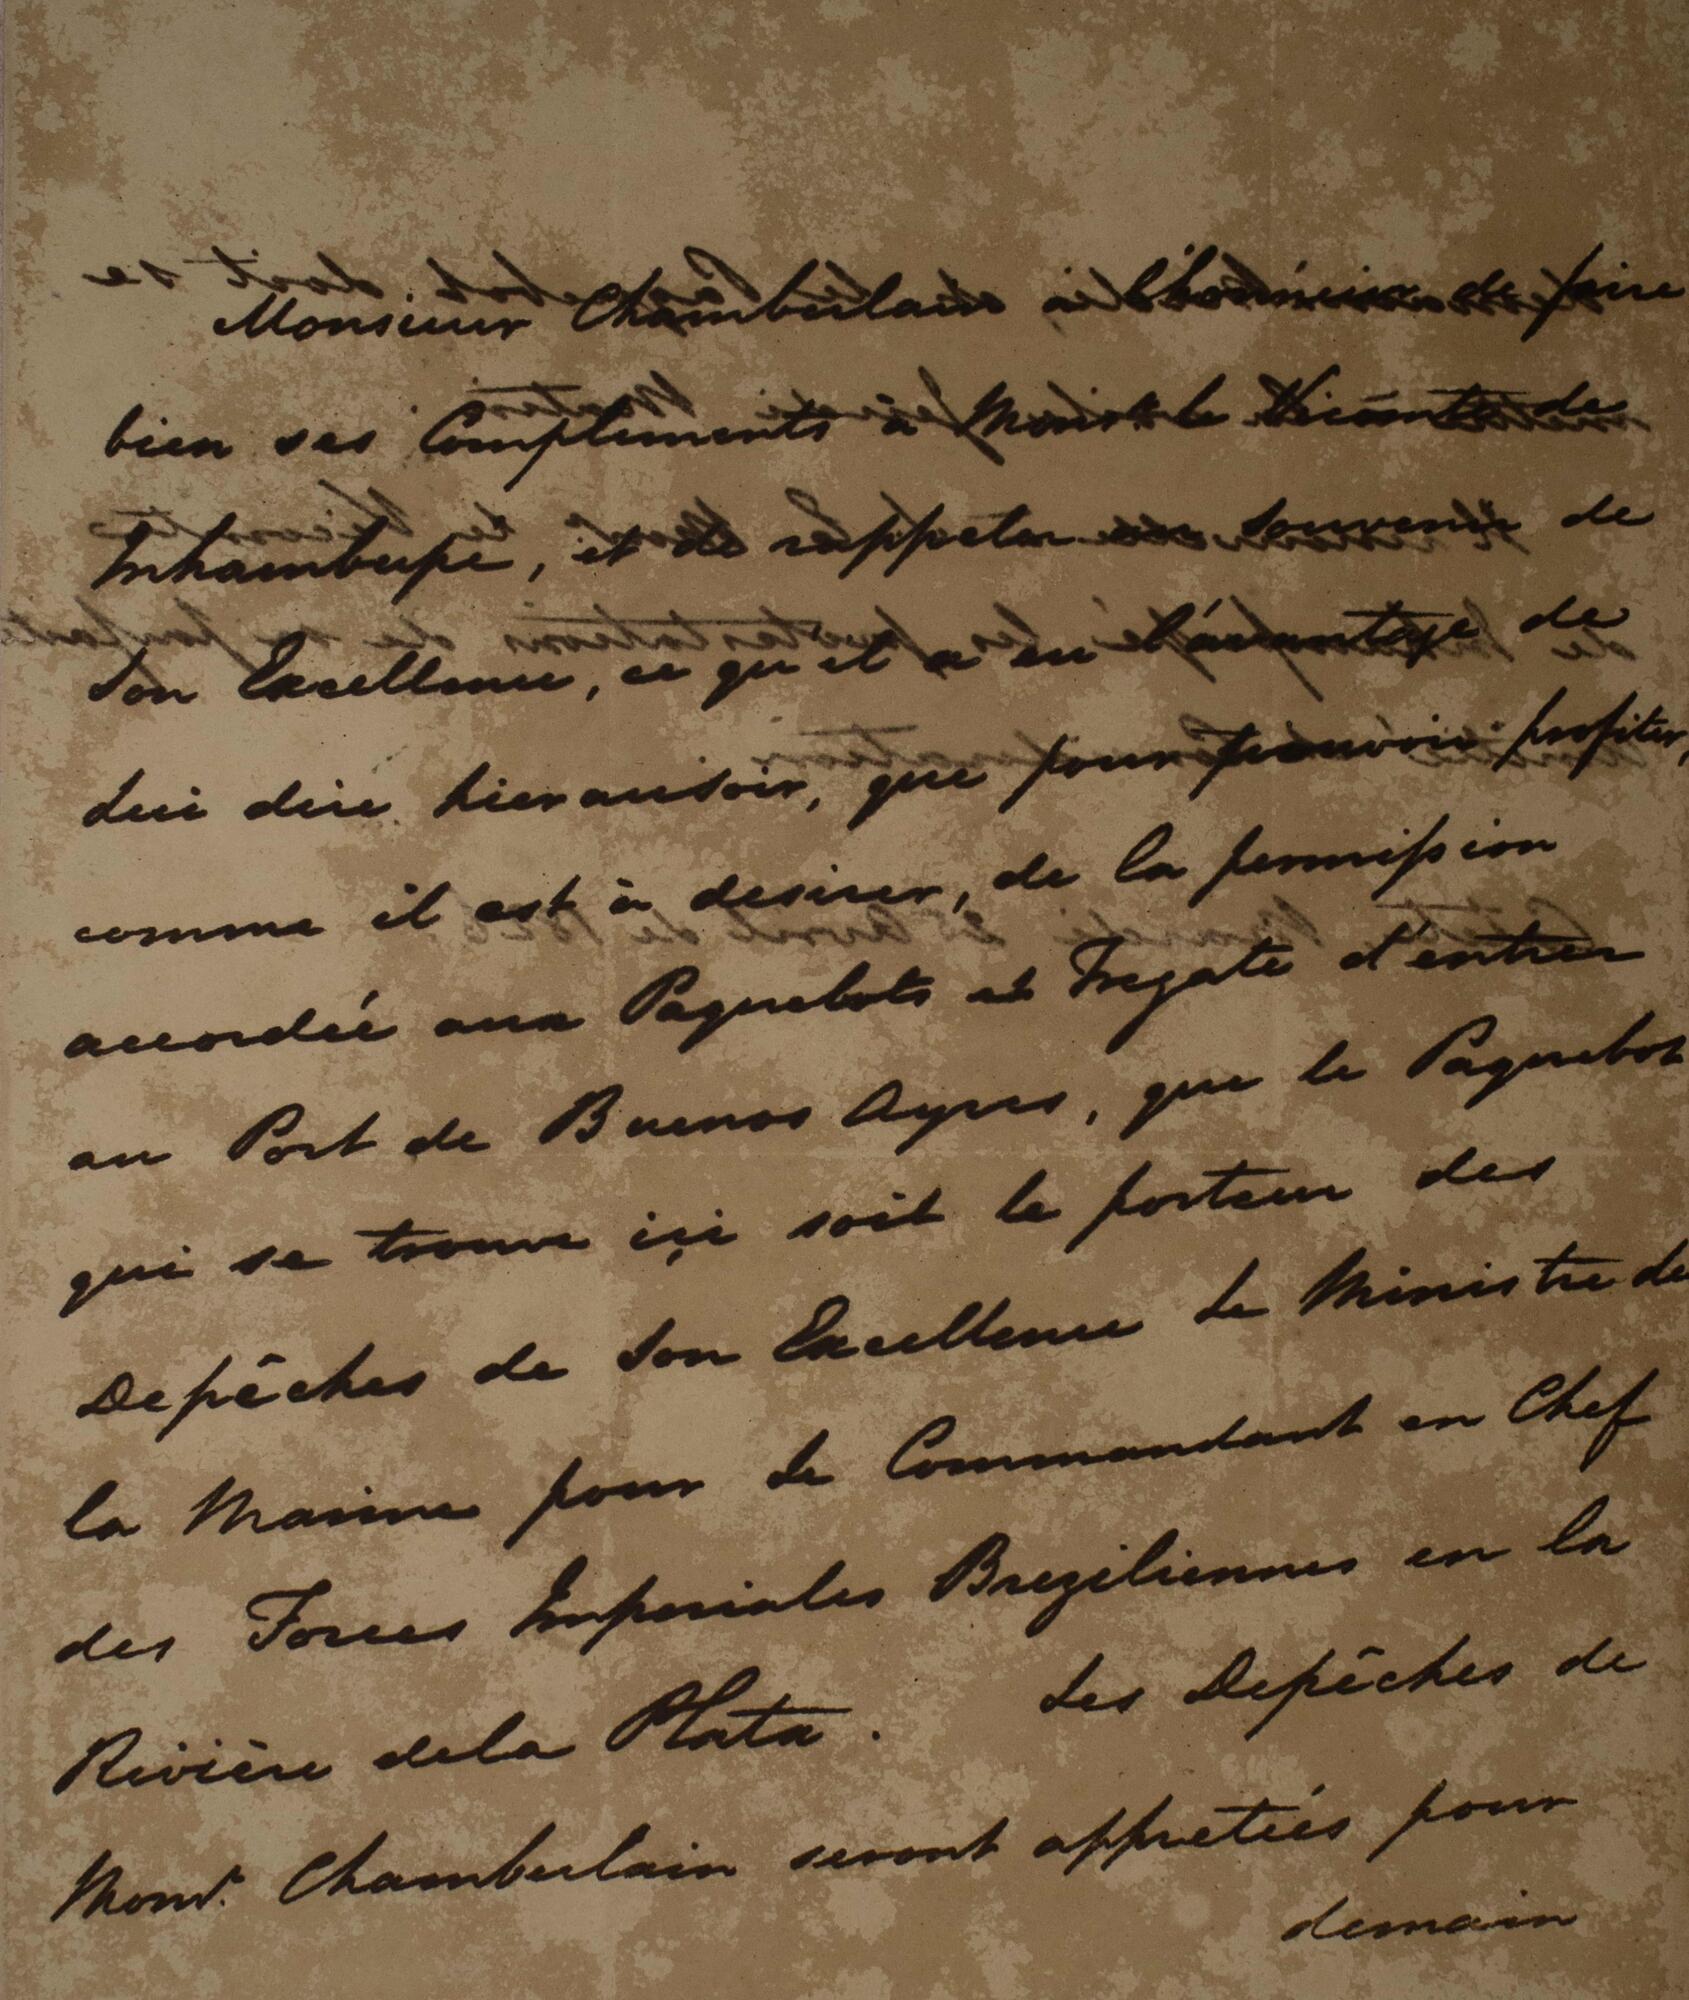 Monsieur Chamberlain à l'honneur de faire
bien ses Complements à Monsr. le Vicomte de
Inhambupe, et de rappeler au souvenir de
Son Excellence, ce qu'il a eu l'avantage de
Lui dire hier au soir, que pour pouvoir profiter,
comme il est à desirer, de la permission
accordée aux Paquebots et Fregate d'entrer
au Port de Buenos Ayres, que le Paquebot
qui se trouve içi soit le porteur des
Depêches de Son Excellence Le Ministre de
la Marine pour Le Commandant en Chef
des Forces Imperiales Breziliennes en la
Rivière de la Plata. Les Depêches de
Monsr. Chamberlain seront appretées pour
demain